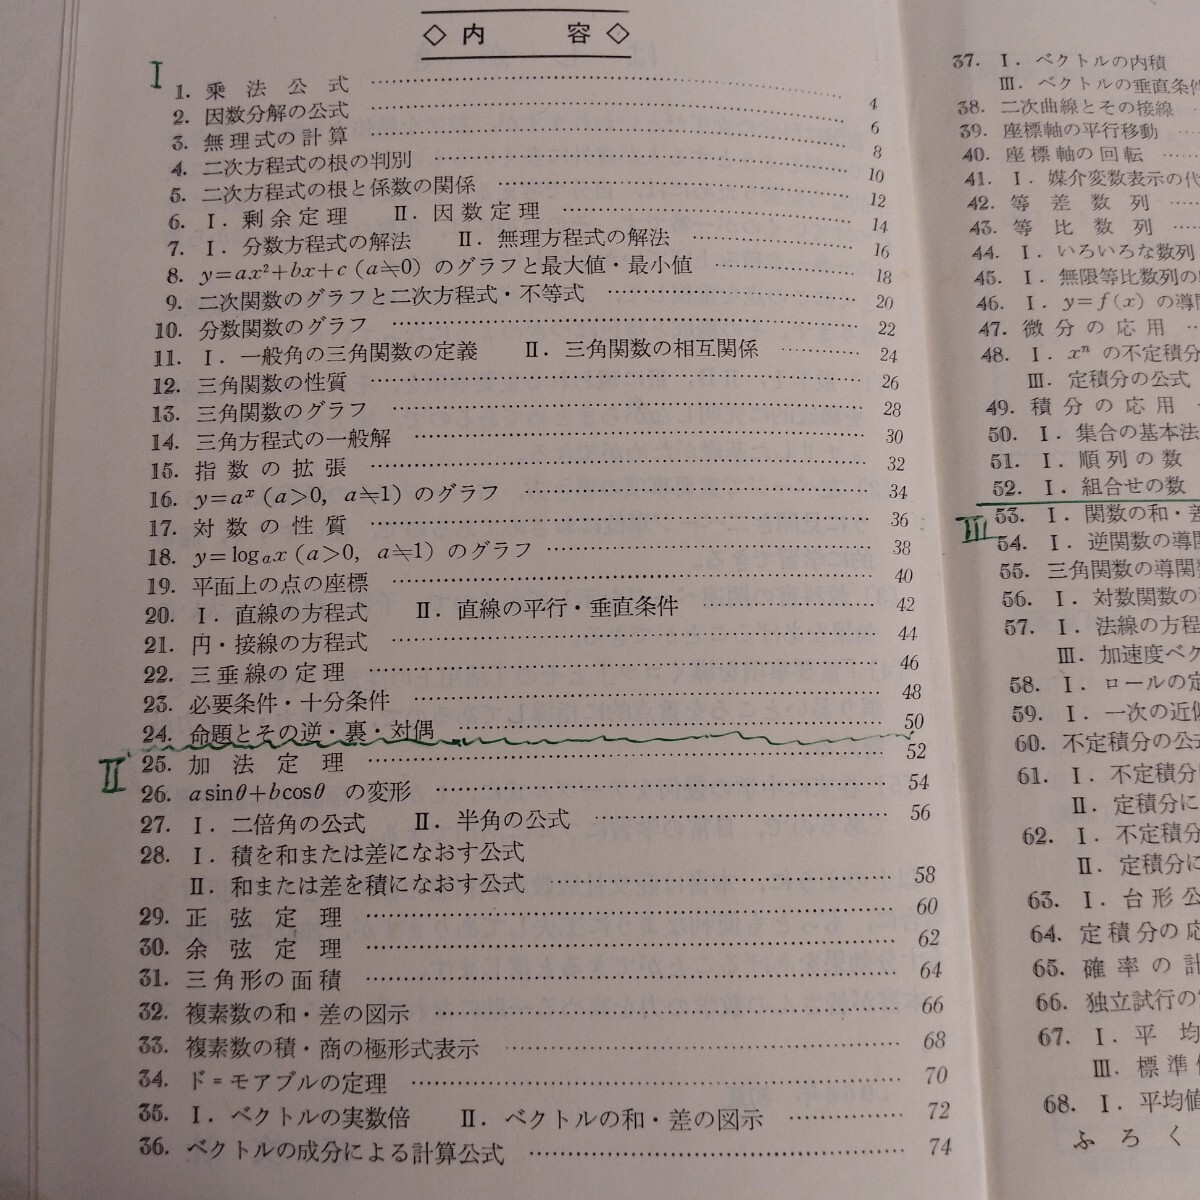 ◇ 内 容 ◇
I
1. 乗法公式 4
2. 因数分解の公式 6
3. 無理式の計算 8
4. 二次方程式の根の判別 10
5. 二次方程式の根と係数の関係 12
6. Ⅰ. 剰余定理 Ⅱ. 因数定理 14
7. Ⅰ. 分数方程式の解法 Ⅱ. 無理方程式の解法 16
8. y=ax²+bx+c (a≒0) のグラフと最大値・最小値 18
9. 二次関数のグラフと二次方程式・不等式 20
10. 分数関数のグラフ 22
11. Ⅰ. 一般角の三角関数の定義 Ⅱ. 三角関数の相互関係 24
12. 三角関数の性質 26
13. 三角関数のグラフ 28
14. 三角方程式の一般解 30
15. 指数の拡張 32
16. y=aˣ (a>0, a≒1) のグラフ 34
17. 対数の性質 36
18. y=logₐx (a>0, a≒1) のグラフ 38
19. 平面上の点の座標 40
20. Ⅰ. 直線の方程式 Ⅱ. 直線の平行・垂直条件 42
21. 円・接線の方程式 44
22. 三垂線の定理 46
23. 必要条件・十分条件 48
24. 命題とその逆・裏・対偶 50
II
25. 加法定理 52
26. asinθ+bcosθ の変形 54
27. Ⅰ. 二倍角の公式 Ⅱ. 半角の公式 56
28. Ⅰ. 積を和または差になおす公式
Ⅱ. 和または差を積になおす公式 58
29. 正弦定理 60
30. 余弦定理 62
31. 三角形の面積 64
32. 複素数の和・差の図示 66
33. 複素数の積・商の極形式表示 68
34. ド=モアブルの定理 70
35. Ⅰ. ベクトルの実数倍 Ⅱ. ベクトルの和・差の図示 72
36. ベクトルの成分による計算公式 74
37. Ⅰ. ベクトルの内積
Ⅲ. ベクトルの垂直条件
38. 二次曲線とその接線
39. 座標軸の平行移動
40. 座標軸の回転
41. Ⅰ. 媒介変数表示の代
42. 等差数列
43. 等比数列
44. Ⅰ. いろいろな数列
45. Ⅰ. 無限等比数列の
46. Ⅰ. y=f(x) の導関
47. 微分の応用
48. Ⅰ. xⁿ の不定積分
Ⅲ. 定積分の公式
49. 積分の応用
50. Ⅰ. 集合の基本法
51. Ⅰ. 順列の数
52. Ⅰ. 組合せの数
III
53. Ⅰ. 関数の和・差
54. Ⅰ. 逆関数の導関
55. 三角関数の導関数
56. Ⅰ. 対数関数の
57. Ⅰ. 法線の方程
Ⅲ. 加速度ベク
58. Ⅰ. ロールの定
59. Ⅰ. 一次の近似
60. 不定積分の公式
61. Ⅰ. 不定積分
Ⅱ. 定積分に
62. Ⅰ. 不定積分
Ⅱ. 定積分に
63. Ⅰ. 台形公
64. 定積分の応
65. 確率の計
66. 独立試行の
67. Ⅰ. 平均
Ⅲ. 標準
68. Ⅰ. 平均値
ふろく